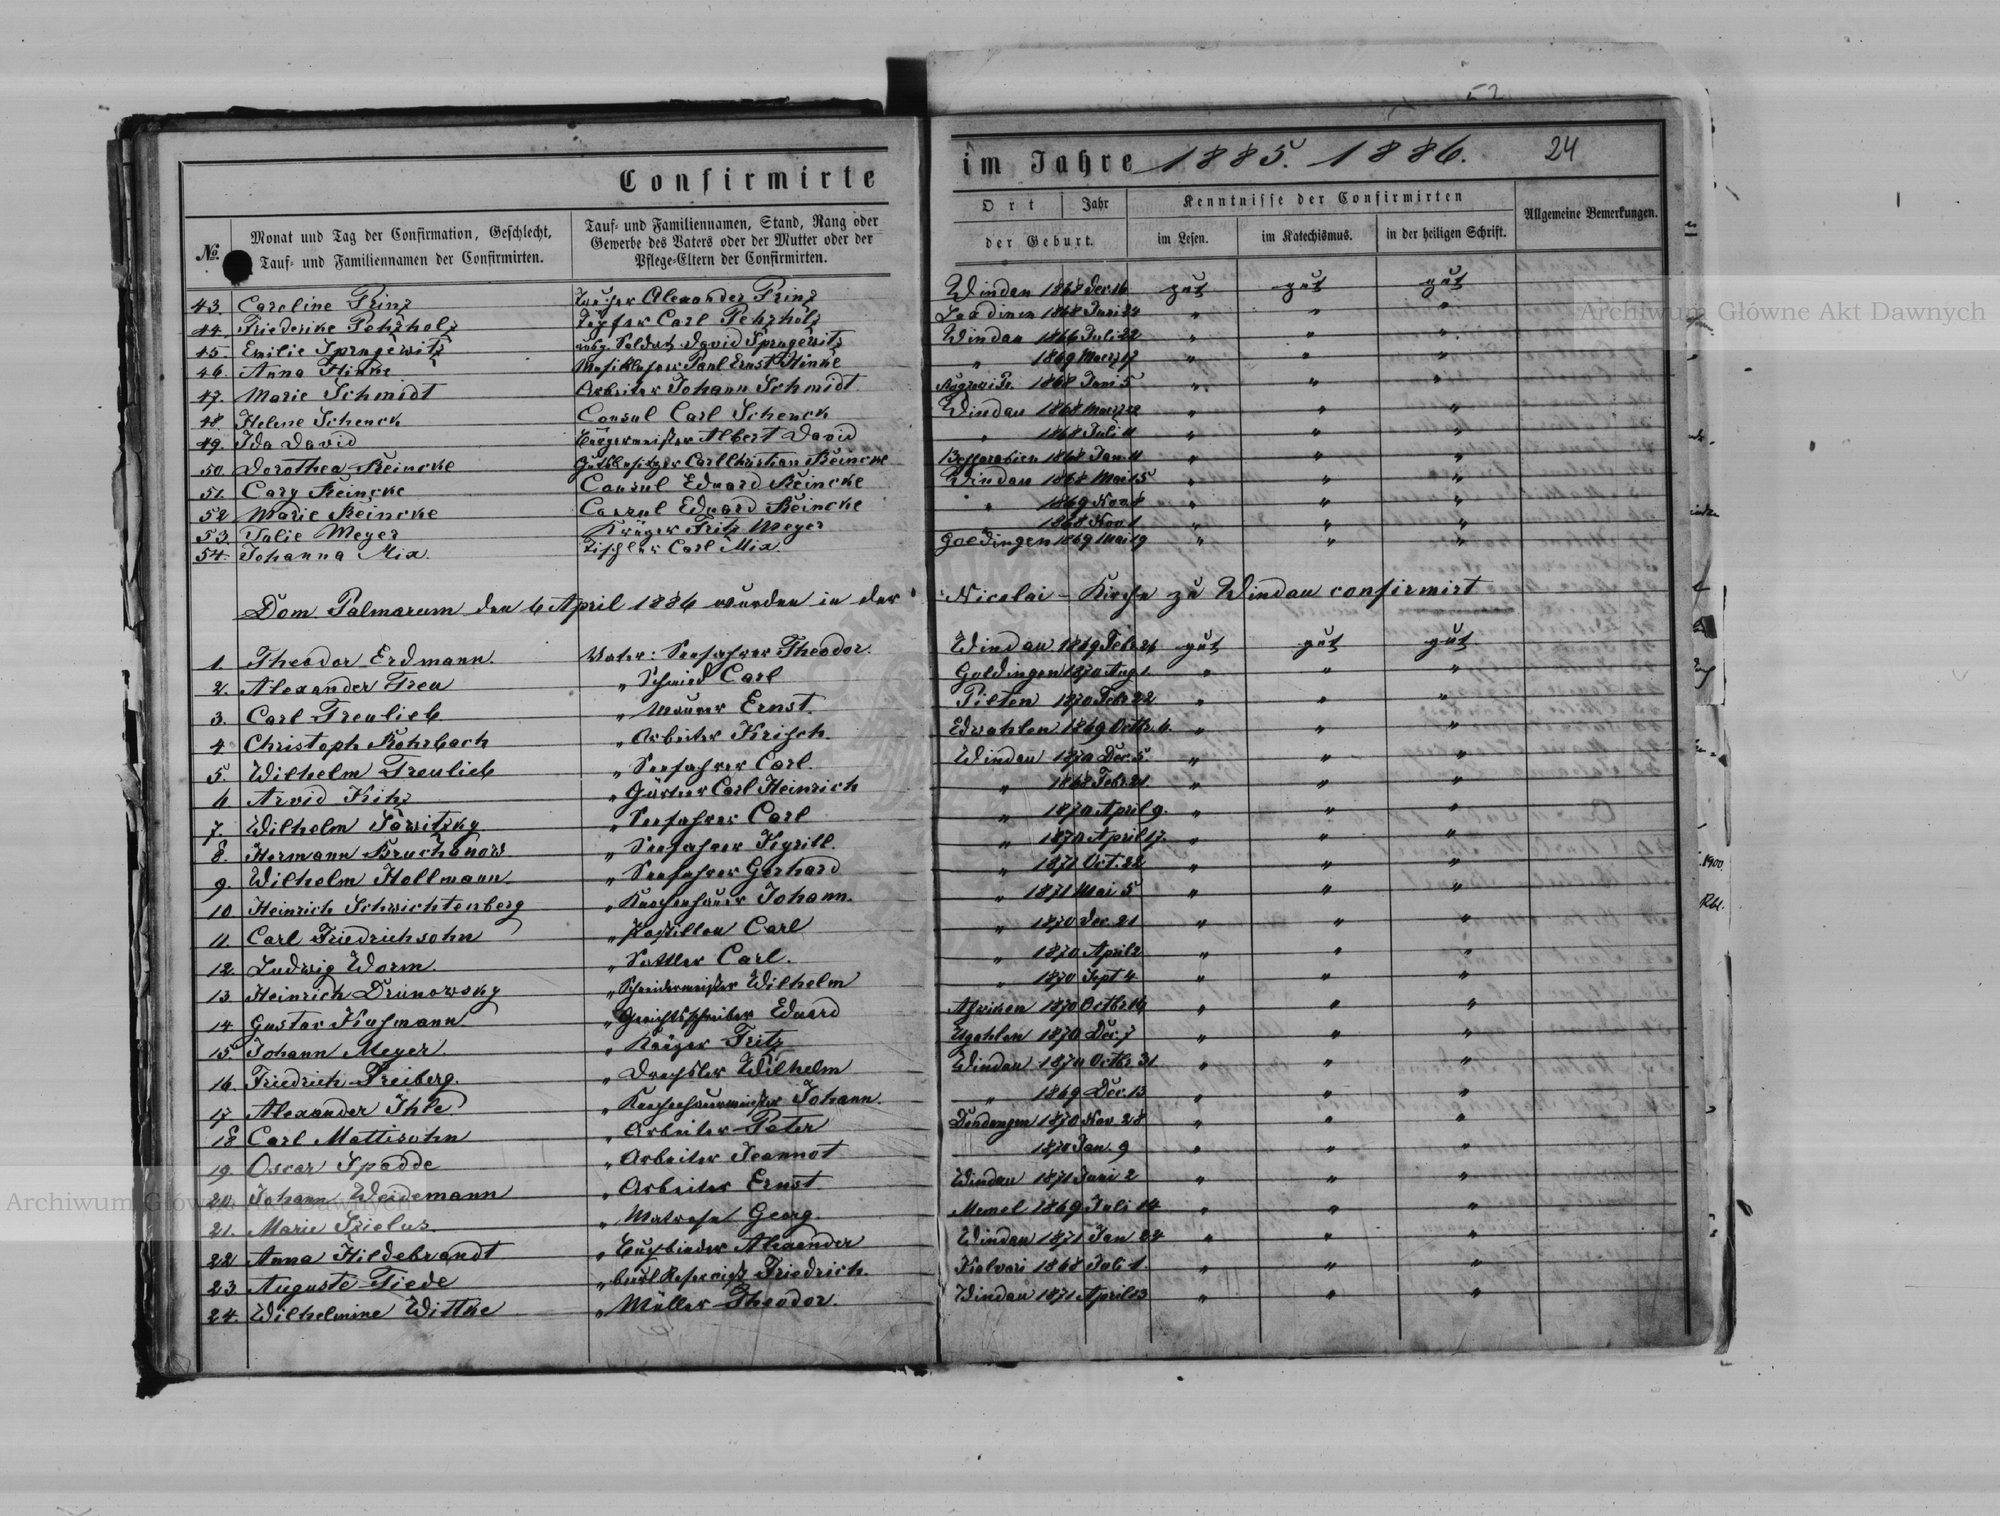 Confirmirte im Jahre 1885. 1886. 24
№ Monat und Tag der Confirmation, Geschlecht, Tauf- und Familiennamen der Confirmirten. Tauf- und Familiennamen, Stand, Rang oder Gewerbe des Vaters oder der Mutter oder der Pflege-Eltern der Confirmirten. Ort Jahr der Geburt. Kenntnisse der Confirmirten im Lesen. im Katechismus. in der heiligen Schrift. Allgemeine Bemerkungen.
43. Caroline Prinz Alexander Prinz Windau 1868 Dec. 16 gut gut gut
44. Friederike Pehzholz Töpfer Carl Pehzholz 1868 Juni 24 " " "
45. Emilie Sprugewitz Soldat David Sprugewitz Windau 1866 Juli 22 " " "
46. Anna Hinke Paul Ernst Hinke " 1869 Maerz 17 " " "
47. Marie Schmidt Arbeiter Johann Schmidt 1868 Juni 5 " " "
48. Helene Schenck Consul Carl Schenck Windau 1868 Maerz 22 " " "
49. Ida David Bürgermeister Albert David " 1868 Juli 11 " " "
50. Dorothea Reincke Gutsbesitzer Carl Christian Reincke Bessarabien 1868 Jan. 11 " " "
51. Cary Reincke Consul Eduard Reincke Windau 1868 Mai 15 " " "
52. Marie Reincke Consul Eduard Reincke " 1869 Nov. 8 " " "
53. Julie Meyer Krüger Fritz Meyer " 1868 Nov. 1 " " "
54. Johanna Mix. Tischler Carl Mix. Goldingen 1869 Mai 19 " " "
Dom. Palmarum den 6 April 1886 wurden in der Nicolai-Kirche zu Windau confirmirt
1. Theodor Erdmann. Vater: Seefahrer Theodor. Windau 1869 Febr. 26 gut gut gut
2. Alexander Treu " Schmied Carl Goldingen 1870 Aug. 1. " " "
3. Carl Treulieb " Maurer Ernst. Pilten 1870 Febr. 22 " " "
4. Christoph Rohrbach " Arbeiter Krisch. Edwahlen 1869 Octbr. 6. " " "
5. Wilhelm Treulieb " Seefahrer Carl. Windau 1870 Dec. 5. " " "
6. Arvid Kitz " Gärtner Carl Heinrich " 1868 Febr. 21. " " "
7. Wilhelm Sawitzky " Seefahrer Carl " 1870 April 9. " " "
8. Hermann Bruchanow. " Seefahrer Kyrill. " 1870 April 17. " " "
9. Wilhelm Hollmann. " Seefahrer Gerhard " 1871 Oct. 22 " " "
10. Heinrich Schwichtenberg " Knochenhauer Johann. " 1871 Mai 5 " " "
11. Carl Friedrichsohn " Postillon Carl " 1870 Dec. 21 " " "
12. Ludwig Worm. " Sattler Carl. " 1870 April 2 " " "
13. Heinrich Drunowsky " Schneidermeister Wilhelm " 1870 Sept 4 " " "
14. Gustav Kusmann. " Gerichtsschreiber Eduard 1870 Octbr. 16 " " "
15. Johann Meyer. " Krüger Fritz Ugahlen 1870 Dec. 7 " " "
16. Friedrich Freiberg. " Drechsler Wilhelm Windau 1870 Octbr. 31 " " "
17. Alexander Ihle " Knochenhauermeister Johann. " 1869 Dec. 13 " " "
18. Carl Mattisohn " Arbeiter Peter 1870 Nov. 28 " " "
19. Oscar Spadde " Arbeiter Jeannot 1870 Jan. 9 " " "
20. Johann Weidemann " Arbeiter Ernst. Windau 1871 Juni 2 " " "
21. Marie Srielus. " Matrose Georg. Memel 1869 Juli 14 " " "
22. Anna Hildebrandt " Buchbinder Alexander Windau 1871 Jan 24 " " "
23. Auguste Tiede " Friedrich. 1868 Juli 1. " " "
24. Wilhelmine Wittke " Müller Theodor. Windau 1871 April 13 " " "
Archiwum Główne Akt Dawnych
Archiwum Główne Akt Dawnych